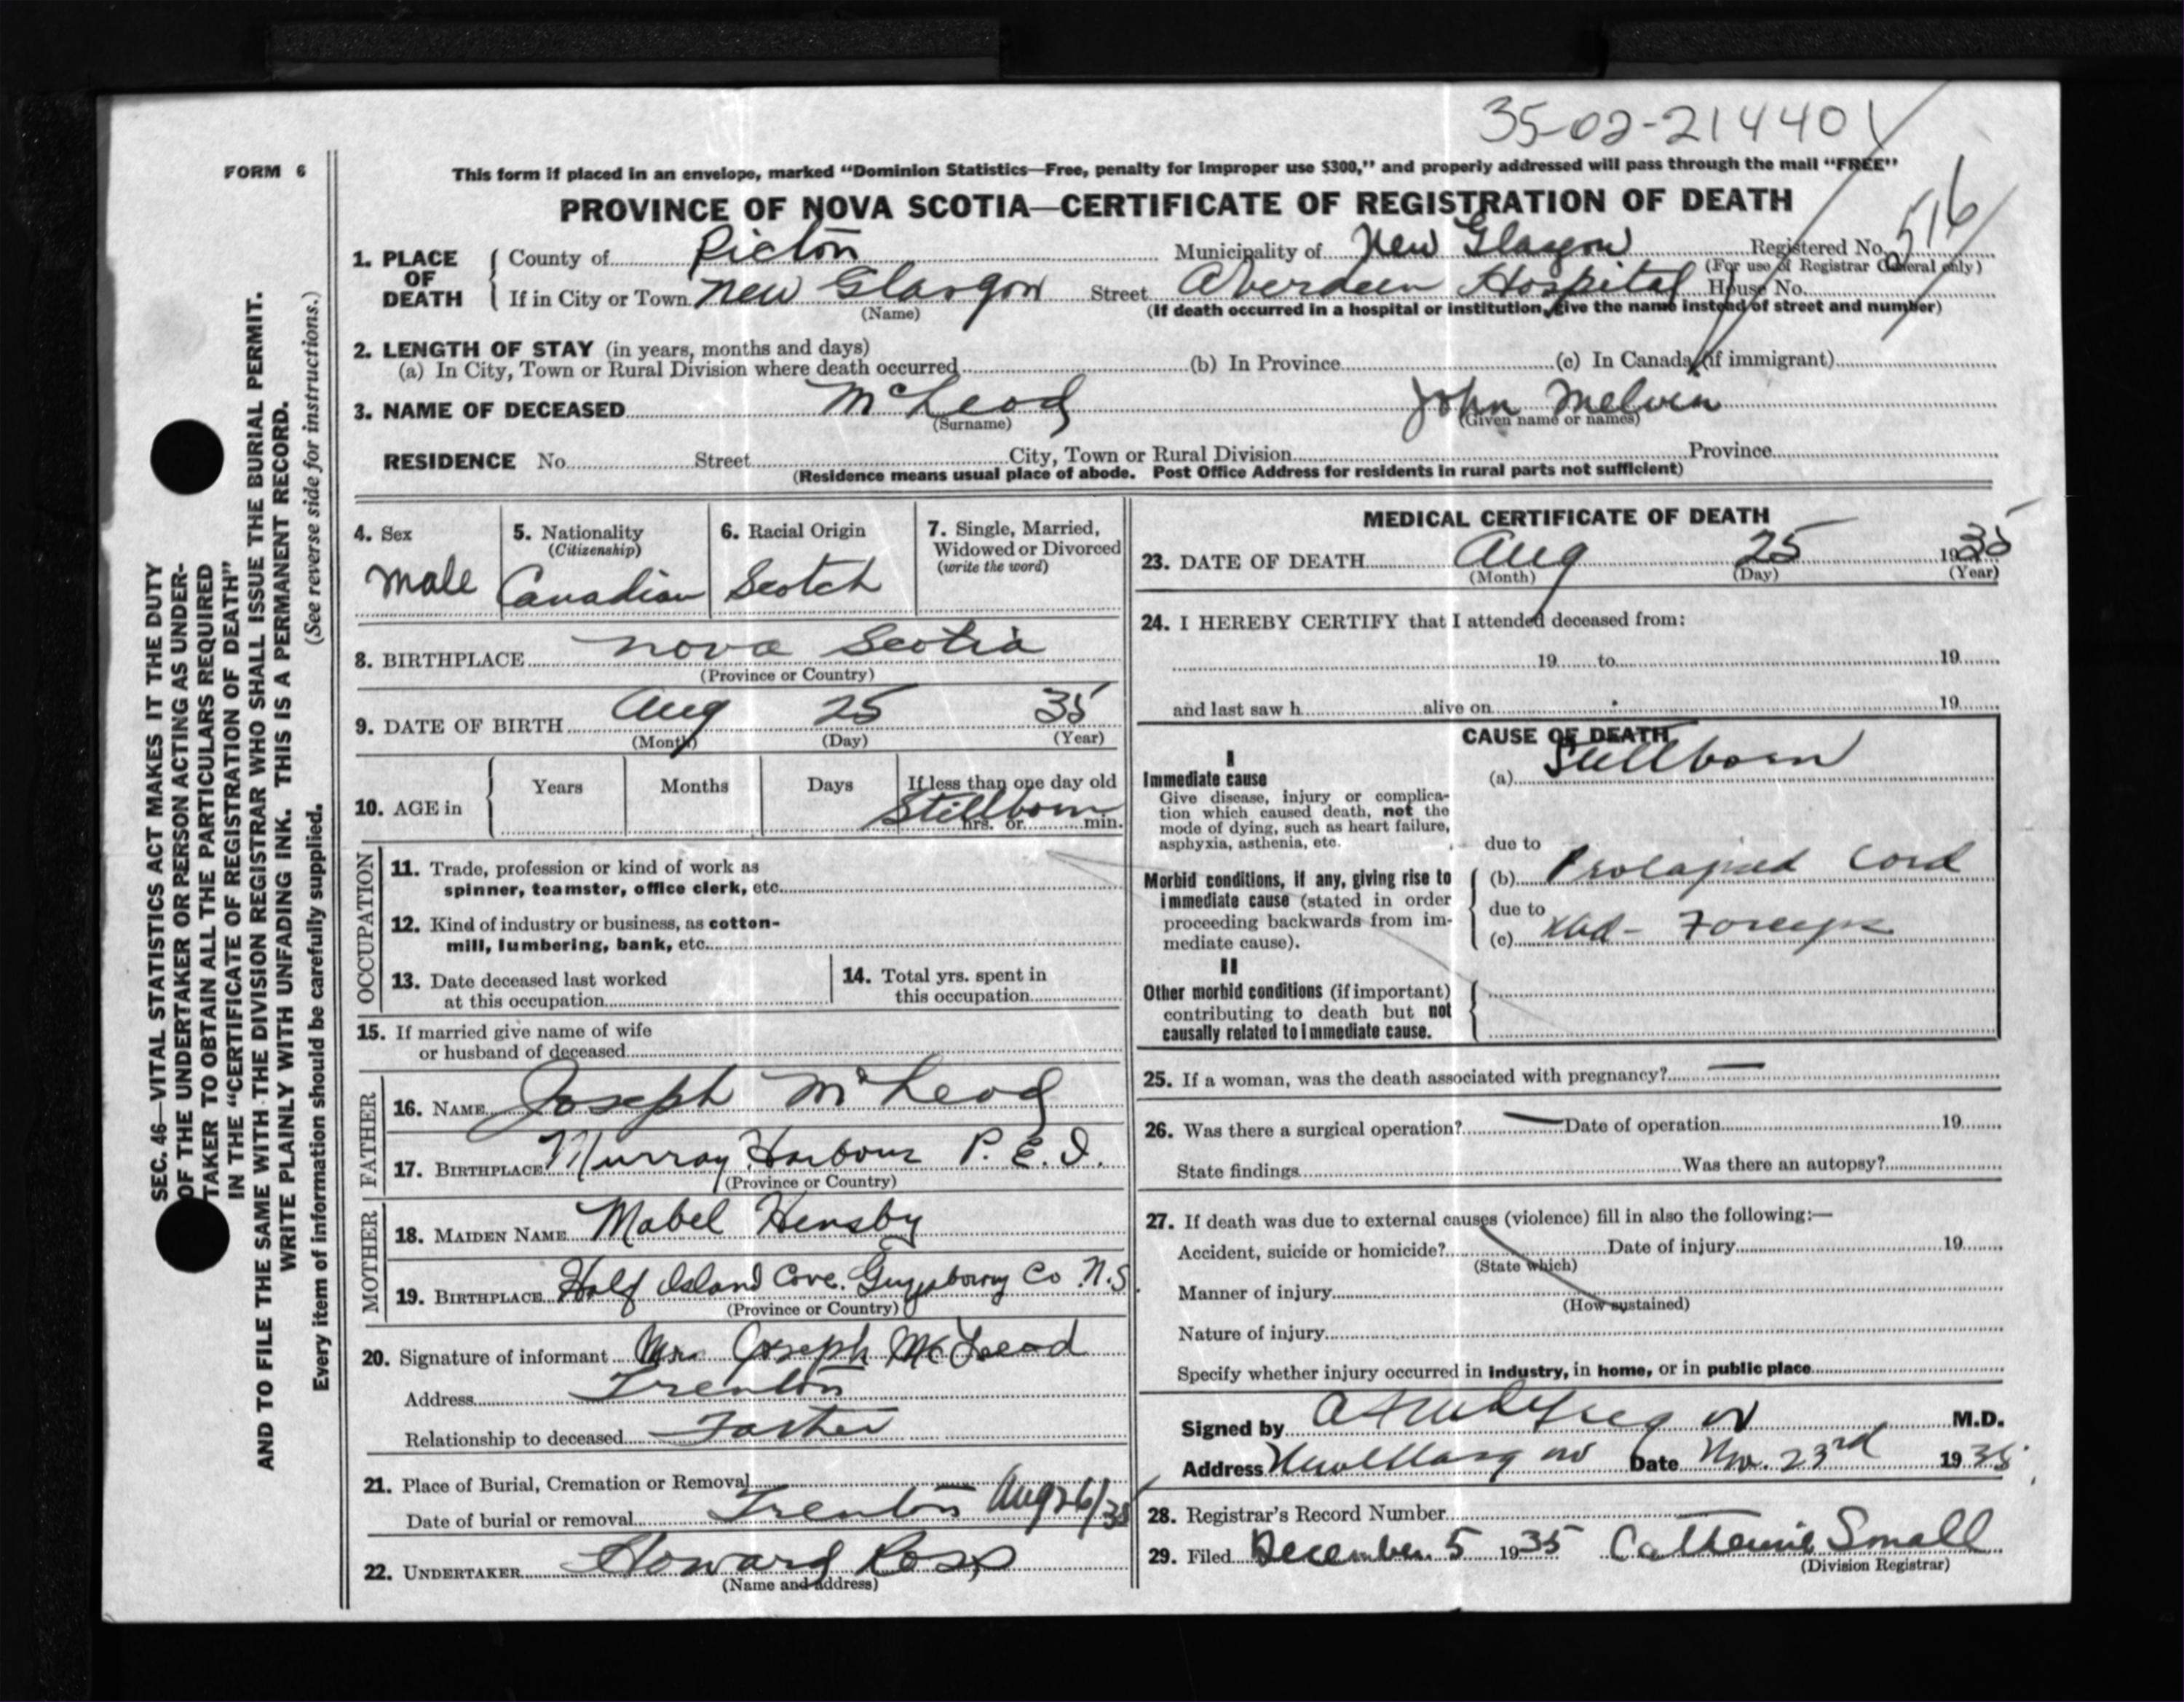 35-02-21440
FORM 6
This form if placed in an envelope, marked "Dominion Statistics—Free, penalty for improper use $300," and properly addressed will pass through the mail "FREE"
PROVINCE OF NOVA SCOTIA—CERTIFICATE OF REGISTRATION OF DEATH
516
1. PLACE OF DEATH { County of Pictou Municipality of New Glasgow Registered No.
(For use of Registrar General only)
If in City or Town New Glasgow Street Aberdeen Hospital House No.
(Name) (If death occurred in a hospital or institution, give the name instead of street and number)
2. LENGTH OF STAY (in years, months and days)
(a) In City, Town or Rural Division where death occurred (b) In Province (c) In Canada (if immigrant)
3. NAME OF DECEASED McLeod John Melvin
(Surname) (Given name or names)
RESIDENCE No. Street City, Town or Rural Division Province
(Residence means usual place of abode. Post Office Address for residents in rural parts not sufficient)
4. Sex
Male
5. Nationality
(Citizenship)
Canadian
6. Racial Origin
Scotch
7. Single, Married,
Widowed or Divorced
(write the word)
8. BIRTHPLACE Nova Scotia
(Province or Country)
9. DATE OF BIRTH Aug 25 35
(Month) (Day) (Year)
10. AGE in { Years Months Days If less than one day old
Stillborn
hrs. or min.
OCCUPATION
11. Trade, profession or kind of work as
spinner, teamster, office clerk, etc.
12. Kind of industry or business, as cotton-
mill, lumbering, bank, etc.
13. Date deceased last worked
at this occupation
14. Total yrs. spent in
this occupation
15. If married give name of wife
or husband of deceased
FATHER
16. NAME Joseph McLeod
17. BIRTHPLACE Murray Harbour P.E.I.
(Province or Country)
MOTHER
18. MAIDEN NAME Mabel Hensby
19. BIRTHPLACE Half Island Cove, Guysboroy Co N.S.
(Province or Country)
20. Signature of informant Mrs Joseph McLeod
Address Trenton
Relationship to deceased Father
21. Place of Burial, Cremation or Removal
Date of burial or removal Trenton Aug 26/35
22. UNDERTAKER Howard Ross
(Name and address)
MEDICAL CERTIFICATE OF DEATH
23. DATE OF DEATH Aug 25 1935
(Month) (Day) (Year)
24. I HEREBY CERTIFY that I attended deceased from:
19 to 19
and last saw h alive on 19
CAUSE OF DEATH
I
Immediate cause
Give disease, injury or complica-
tion which caused death, not the
mode of dying, such as heart failure,
asphyxia, asthenia, etc.
(a) Stillborn
due to
Morbid conditions, if any, giving rise to
immediate cause (stated in order
proceeding backwards from im-
mediate cause).
(b) Prolapsed Cord
due to
(c) Forceps
II
Other morbid conditions (if important)
contributing to death but not
causally related to immediate cause.
25. If a woman, was the death associated with pregnancy? —
26. Was there a surgical operation? — Date of operation 19
State findings Was there an autopsy?
27. If death was due to external causes (violence) fill in also the following:—
Accident, suicide or homicide? Date of injury 19
(State which)
Manner of injury
(How sustained)
Nature of injury
Specify whether injury occurred in industry, in home, or in public place
Signed by M.D.
Address New Glasgow Date Nov. 23rd 1935
28. Registrar's Record Number
29. Filed December 5 1935 Catherine Small
(Division Registrar)
SEC. 46—VITAL STATISTICS ACT MAKES IT THE DUTY
OF THE UNDERTAKER OR PERSON ACTING AS UNDER-
TAKER TO OBTAIN ALL THE PARTICULARS REQUIRED
IN THE "CERTIFICATE OF REGISTRATION OF DEATH"
AND TO FILE THE SAME WITH THE DIVISION REGISTRAR WHO SHALL ISSUE THE BURIAL PERMIT.
WRITE PLAINLY WITH UNFADING INK. THIS IS A PERMANENT RECORD.
(See reverse side for instructions.)
Every item of information should be carefully supplied.